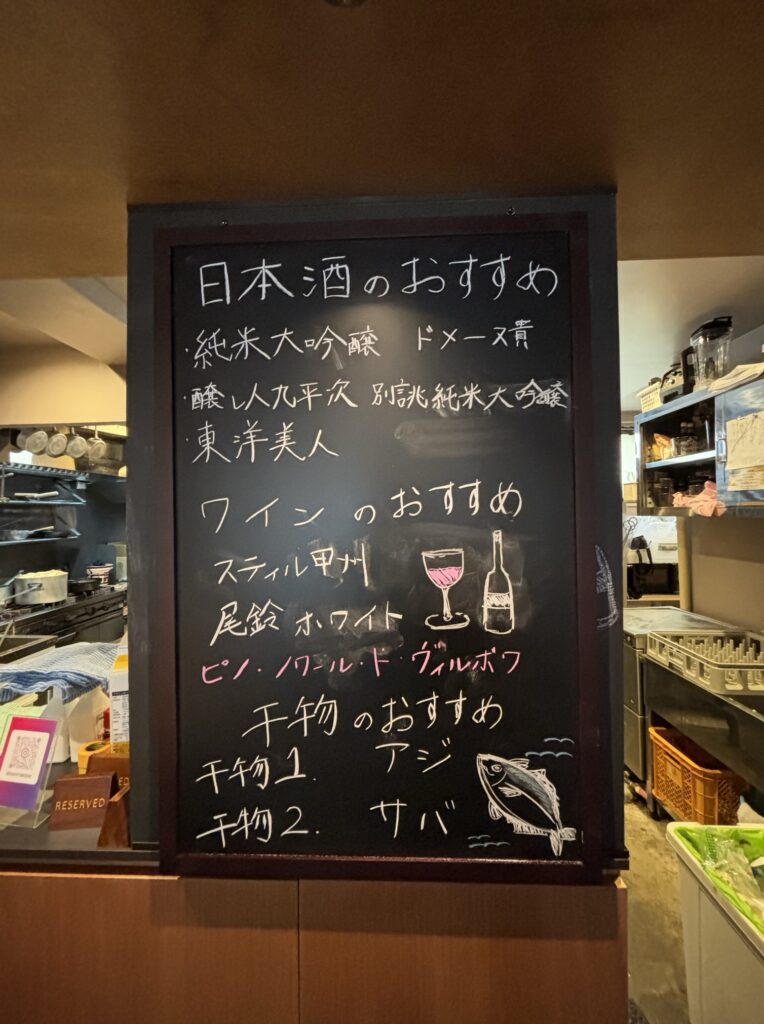 日本酒のおすすめ
・純米大吟醸 ドメーヌ貴
・醸し人九平次 別誂純米大吟醸
・東洋美人
ワインのおすすめ
スティル甲州
尾鈴 ホワイト
ピノ・ノワール・ド・ヴィルボワ
干物のおすすめ
干物1. アジ
干物2. サバ
RESERVED